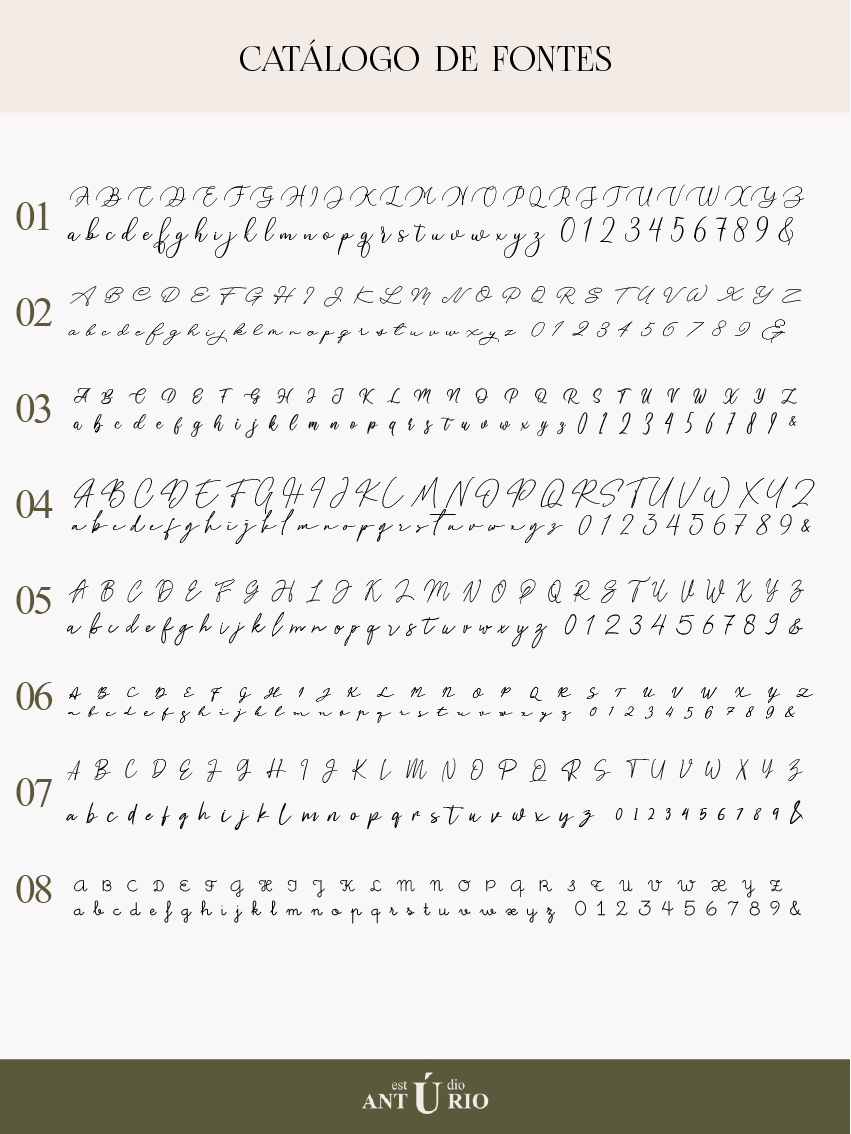 CATÁLOGO DE FONTES
01
A B C D E F G H I J K L M N O P Q R S T U V W X Y Z
a b c d e f g h i j k l m n o p q r s t u v w x y z 0 1 2 3 4 5 6 7 8 9 &
02
A B C D E F G H I J K L M N O P Q R S T U V W X Y Z
a b c d e f g h i j k l m n o p q r s t u v w x y z 0 1 2 3 4 5 6 7 8 9 &
03
A B C D E F G H I J K L M N O P Q R S T U V W X Y Z
a b c d e f g h i j k l m n o p q r s t u v w x y z 0 1 2 3 4 5 6 7 8 9 &
04
A B C D E F G H I J K L M N O P Q R S T U V W X Y Z
a b c d e f g h i j k l m n o p q r s t u v w x y z 0 1 2 3 4 5 6 7 8 9 &
05
A B C D E F G H I J K L M N O P Q R S T U V W X Y Z
a b c d e f g h i j k l m n o p q r s t u v w x y z 0 1 2 3 4 5 6 7 8 9 &
06
A B C D E F G H I J K L M N O P Q R S T U V W X Y Z
a b c d e f g h i j k l m n o p q r s t u v w x y z 0 1 2 3 4 5 6 7 8 9 &
07
A B C D E F G H I J K L M N O P Q R S T U V W X Y Z
a b c d e f g h i j k l m n o p q r s t u v w x y z 0 1 2 3 4 5 6 7 8 9 &
08
A B C D E F G H I J K L M N O P Q R S T U V W X Y Z
a b c d e f g h i j k l m n o p q r s t u v w x y z 0 1 2 3 4 5 6 7 8 9 &
estúdio
ANTÚRIO